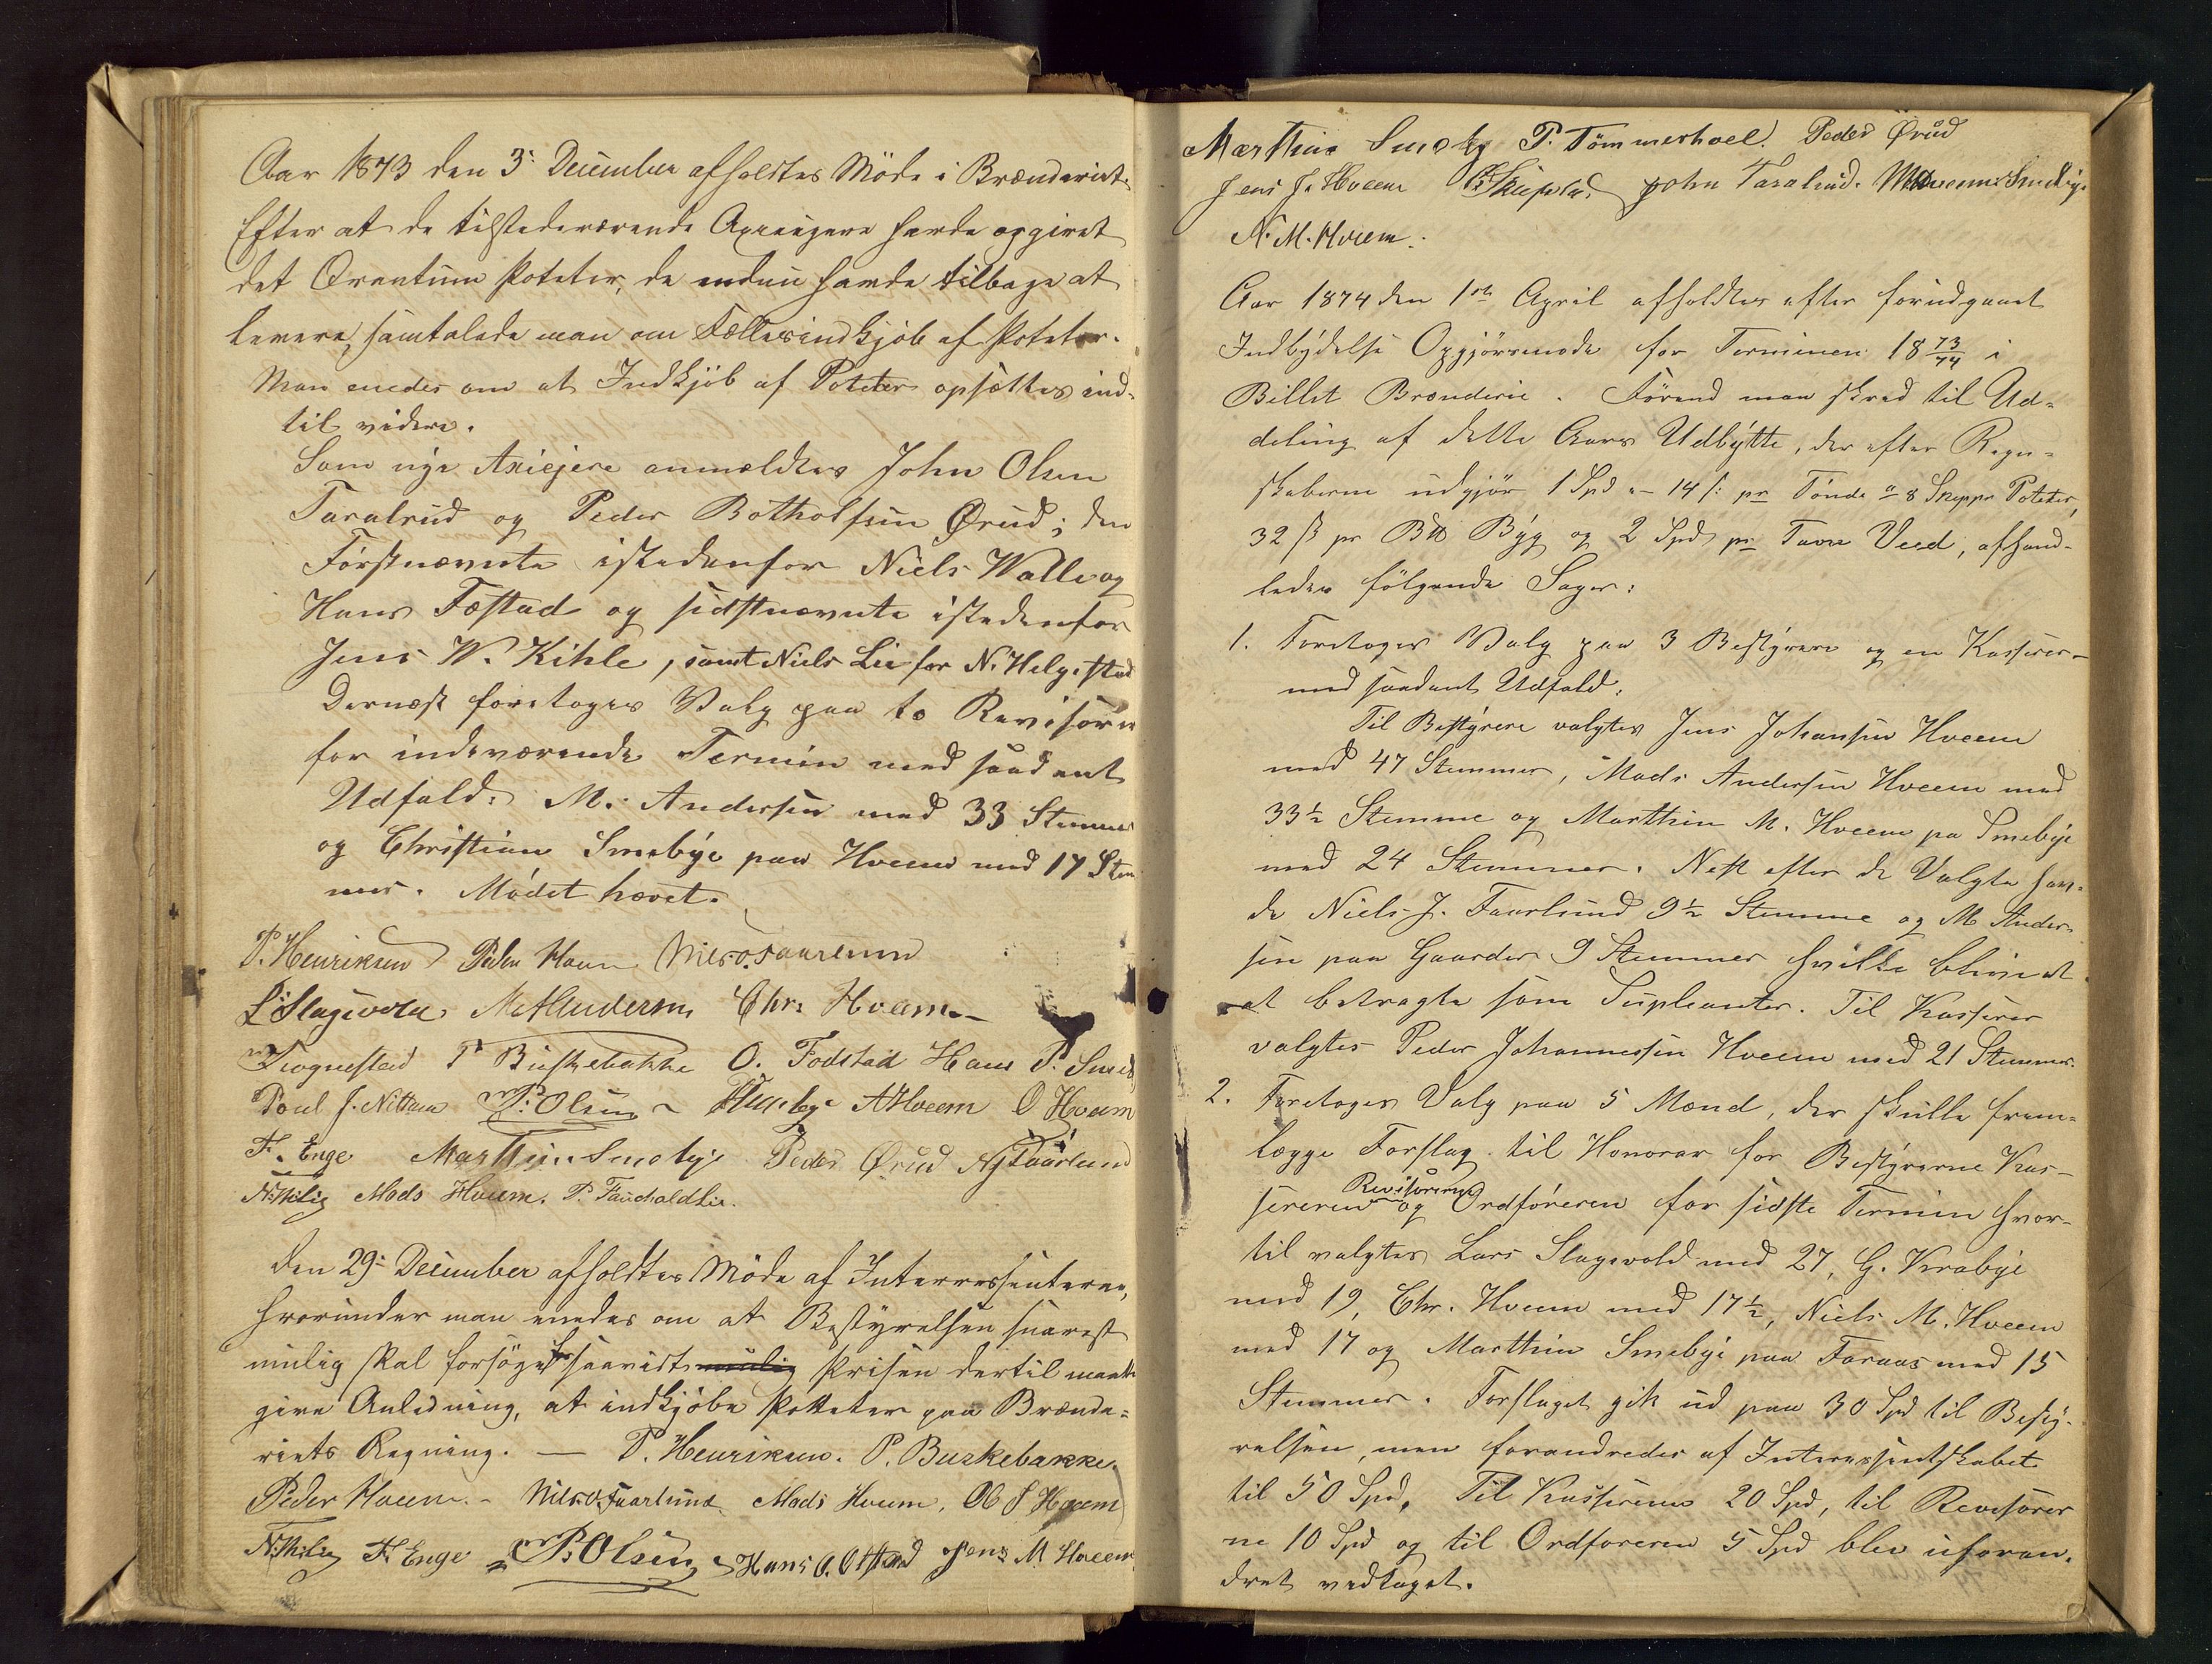 Aar 1873 den 3: December afholdtes Møde i Brænderiet.
Efter at de tilstedeværende Axieejere havde opgivet
det Qvantum Poteter, de endnu havde tilbage at
levere, samtalede man om Fællesindkjøb af Poteter.
Man enedes om at Indkjøb af Poteter opsættes ind-
til videre.
Som nye Axiejere anmeldtes John Olsen
Taralrud og Peder Botholfsen Ørud; den
Førstnævnte istedenfor Niels Walle og
Hans Fæstad og sidstnævnte istedenfor
Jens W. Kihle, samt Niels Lie for N. Helgestad
Dernæst foretoges Valg paa to Revisorer
for indeværende Termin med saadant
Udfald: M. Andersen med 33 Stemmer
og Christian Smebye paa Hveem med 17 Stem
mer. Mødet hævet.
P. Henriksen Peder Hveem Niels O. Faarlund
L. Slagsvold M. Andersen Chr. Hveem
Frognestad P Buskebakke O. Fodstad Hans P. Smeb
Poul J. Nittum P. Olsen A Hveem O Hveem
F. Enge Marthin Smebye Peder Ørud N J Faarlund
N. Kihlig Mads Hveem. P. Fauchaldlie.
den 29: December afholdtes Møde af Interressenterne,
hvorunder man enedes om at Bestyrelsen snarest
mulig skal forsøge saavidt mulig Prisen dertil maatte
give Anledning, at indkjøbe Potteter paa Brænde-
riets Regning. — P. Henriksen. P. Buskebakke.
Peder Hveem. Niels O. Faarlund Mads Hveem, Ole J Hveem
N. Kihlig F. Enge P. Olsen Hans O. Olstad Jens M Hveem
Marthin Smeby P. Tömmerhoel. Peder Ørud
Jens J. Hveem Skiepstad John Taralrud. Smebye
N. M. Hveem.
Aar 1874 den 1ste April afholdtes efter forudgaaet
Indbydelse Opgjørsmøde for Terminen 18 73/74 i
Billet Brænderie. Førend man skred til Ud-
deling af dette Aars Udbytte, der efter Regn-
skaberne udgjør 1 Spd - 14 ß pr Tønde a 8 Skjepper Poteter,
32 ß pr Btt Byg og 2 Spd pr Favn Veed, afhand-
ledes følgende Sager:
1. Foretoges Valg paa 3 Bestyrere og en Kasserer
med saadant Udfald:
Til Bestyrere valgtes Jens Johansen Hveem
med 47 Stemmer, Mads Andersen Hveem med
33½ Stemme og Marthin M. Hveem pa Smebye
med 24 Stemmer. Næst efter de Valgte hav-
de Niels J. Faarlund 9½ Stemme og M Ander-
sen paa Gaarder 9 Stemmer hvilke blive at
at betragte som Supleanter. Til Kasserer
valgtes Peder Johannessen Hveem med 21 Stemmer.
2. Foretoges Valg paa 5 Mænd, der skulle frem-
lægge Forslag til Honorar for Bestyrerne Kas-
Revisorerne
sereren og Ordføreren for sidste Termin hvor-
til valgtes Lars Slagsvold med 27, G. Krabye
med 19, Chr. Hveem med 17½, Niels M. Hveem
med 17 og Marthin Smebye paa Faraas med 15
Stemmer. Forslaget gik ud paa 30 Spd til Besty-
relsen, men forandredes af Interessentskabet
til 50 Spd, Til Kassereren 20 Spd, til Revisorer
ne 10 Spd og til Ordføreren 5 Spd blev uforan-
dret vedtaget.